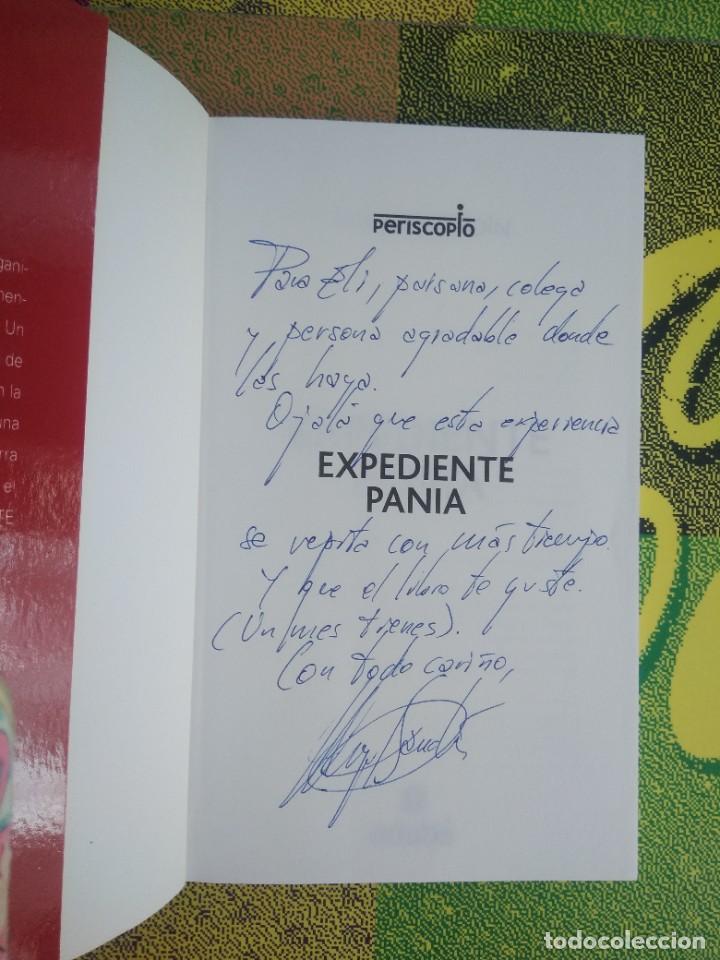 gani-
men-
Un
de
n la
una
rra
el
TE
periscopio
Para Eli, paisana, colega
y persona agradable donde
las haya.
Ojalá que esta experiencia
EXPEDIENTE
PANIA
se repita con más tiempo.
Y que el libro te guste.
(Un mes tienes).
Con todo cariño,
todocoleccion